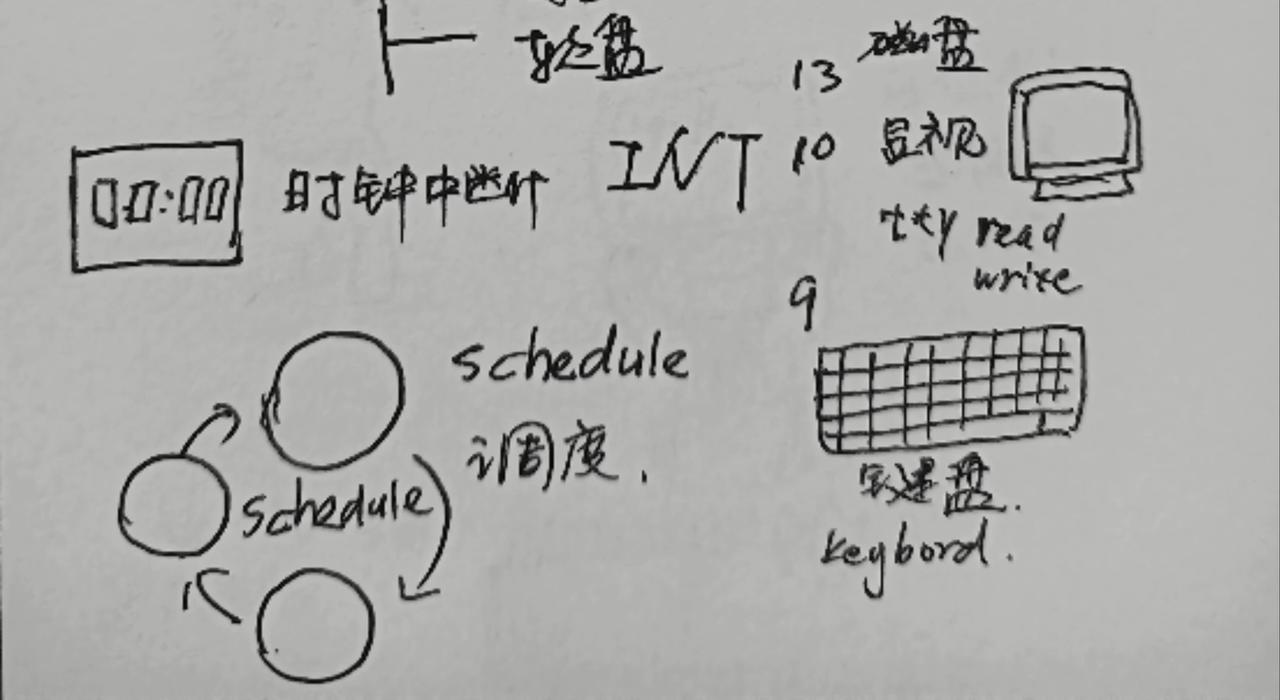 盘
13 磁盘
INT 10 显视
00:00 时钟中断
tty read
write
9
schedule
调度.
schedule
键盘.
keybord.